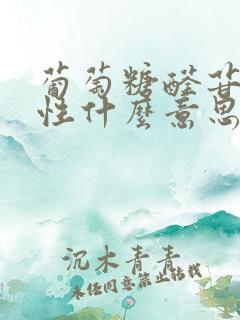 葡萄糖醛苷
性什麼意思
沉木青青
未经同意禁止转载